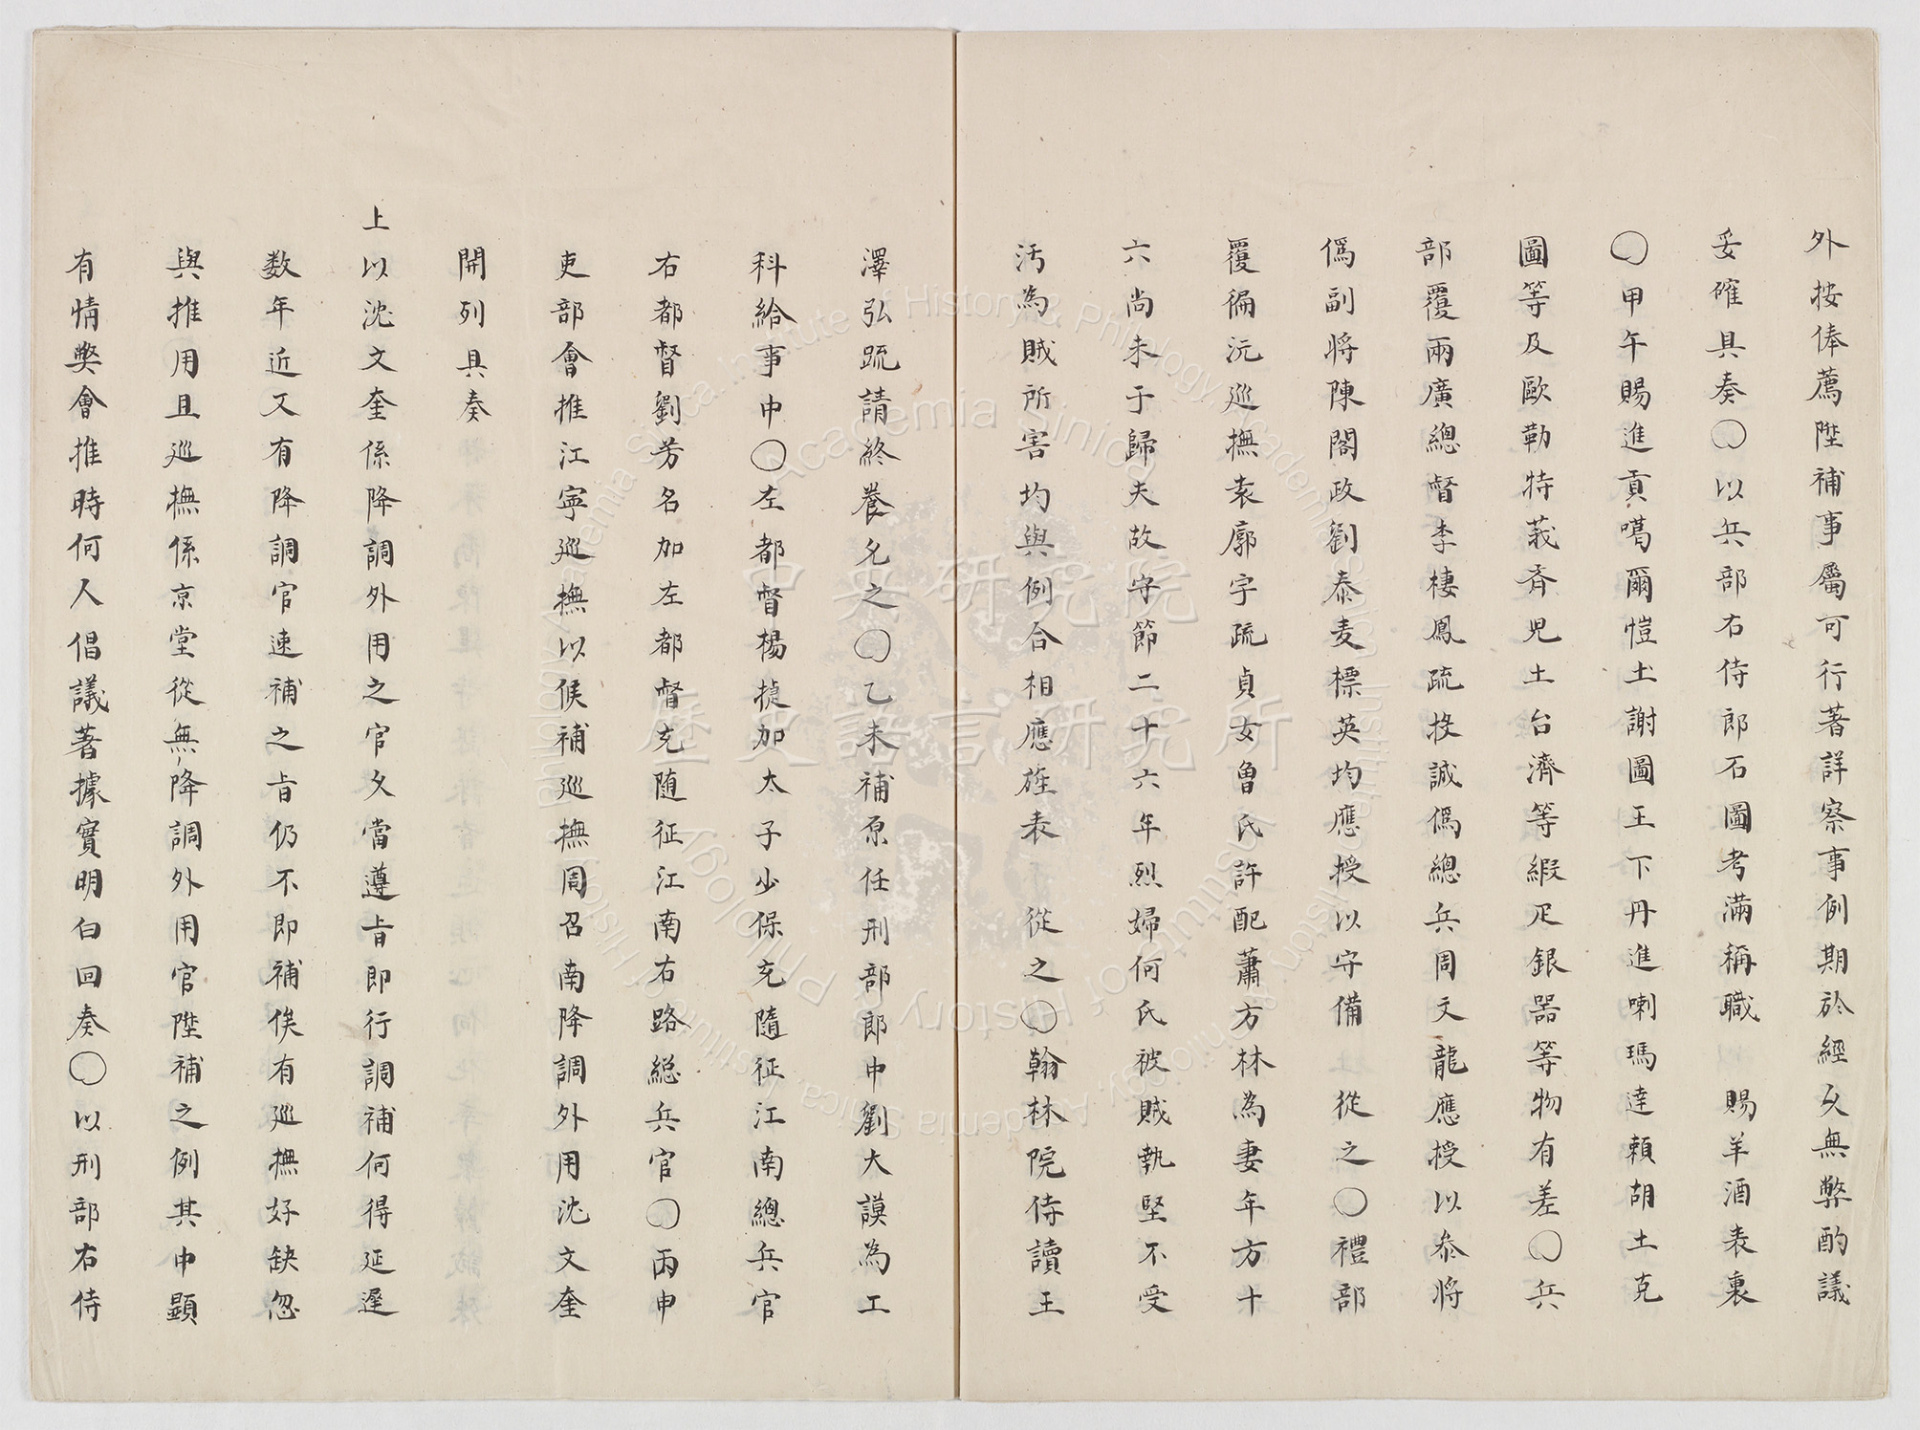 外按俸薦陞補事屬可行著詳察事例期於經久無弊酌議
妥確具奏○以兵部右侍郎石圖考滿稱職 賜羊酒表裏
○甲午賜進貢噶爾愷土謝圖王下丹進喇瑪達賴胡土克
圖等及歐勒特莪齊児土台濟等緞疋銀器等物有差○兵
部覆兩廣總督李棲鳳疏投誠僞總兵周文龍應授以叅將
僞副将陳閣政劉泰麦標英均應授以守備 從之○禮部
覆徧沅巡撫袁廓宇疏貞女曾氏許配蕭方林為妻年方十
六尚未于歸夫故守節二十六年烈婦何氏被賊執堅不受
汚為賊所害均與例合相應旌表 從之○翰林院侍讀王
澤弘疏請終養允之○乙未補原任刑部郎中劉大謨為工
科給事中○左都督楊捷加太子少保充隨征江南總兵官
右都督劉芳名加左都督充随征江南右路総兵官○丙申
吏部會推江寧巡撫以候補巡撫周召南降調外用沈文奎
開列具奏
上以沈文奎係降調外用之官久當遵旨即行調補何得延遲
数年近又有降調官速補之旨仍不即補俟有巡撫好缺忽
與推用且巡撫係京堂從無降調外用官陞補之例其中顯
有情獘會推時何人倡議著據實明白回奏○以刑部右侍
中央研究院
歷史語言研究所
Institute of History & Philology, Academia Sinica